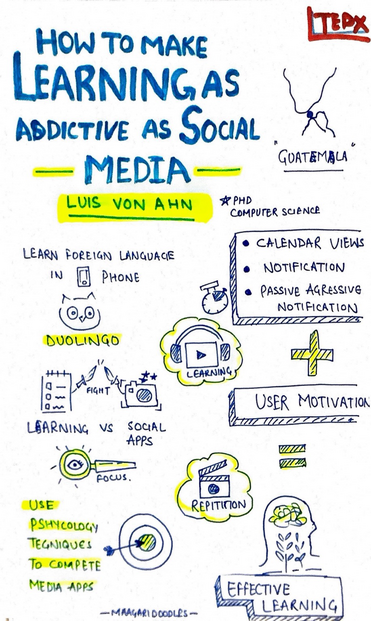 TEDX
HOW TO MAKE
LEARNING AS
ADDICTIVE AS SOCIAL
MEDIA
"GUATEMALA"
LUIS VON AHN
PHD
COMPUTER SCIENCE
LEARN FOREIGN LANGUAGE
IN PHONE
DUOLINGO
FIGHT
LEARNING VS SOCIAL
APPS
FOCUS.
USE
PSHYCOLOGY
TEQNIQUES
TO COMPETE
MEDIA APPS
CALENDAR VIEWS
NOTIFICATION
PASSIVE AGRESSIVE
NOTIFICATION
LEARNING
USER MOTIVATION
REPITITION
EFFECTIVE
LEARNING
—MAAGARIDOODLES—